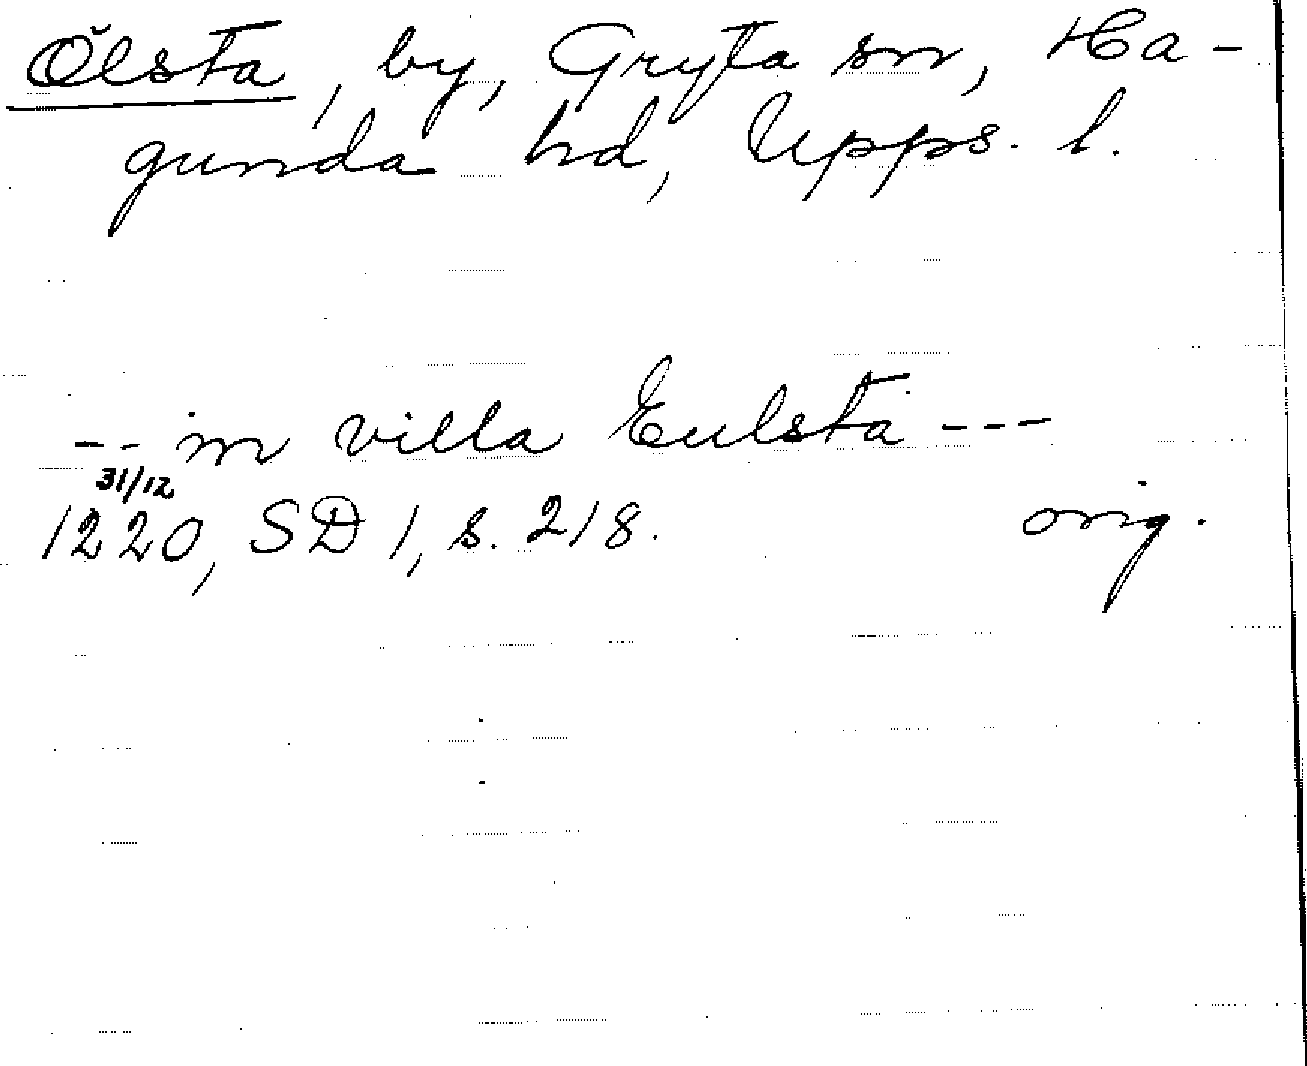 Ölsta, by, Gryta sn, Ha-
gunda hd, Upps. l.
-- in villa Eulsta ---
31/12
1220, SD 1, s. 218. orig.